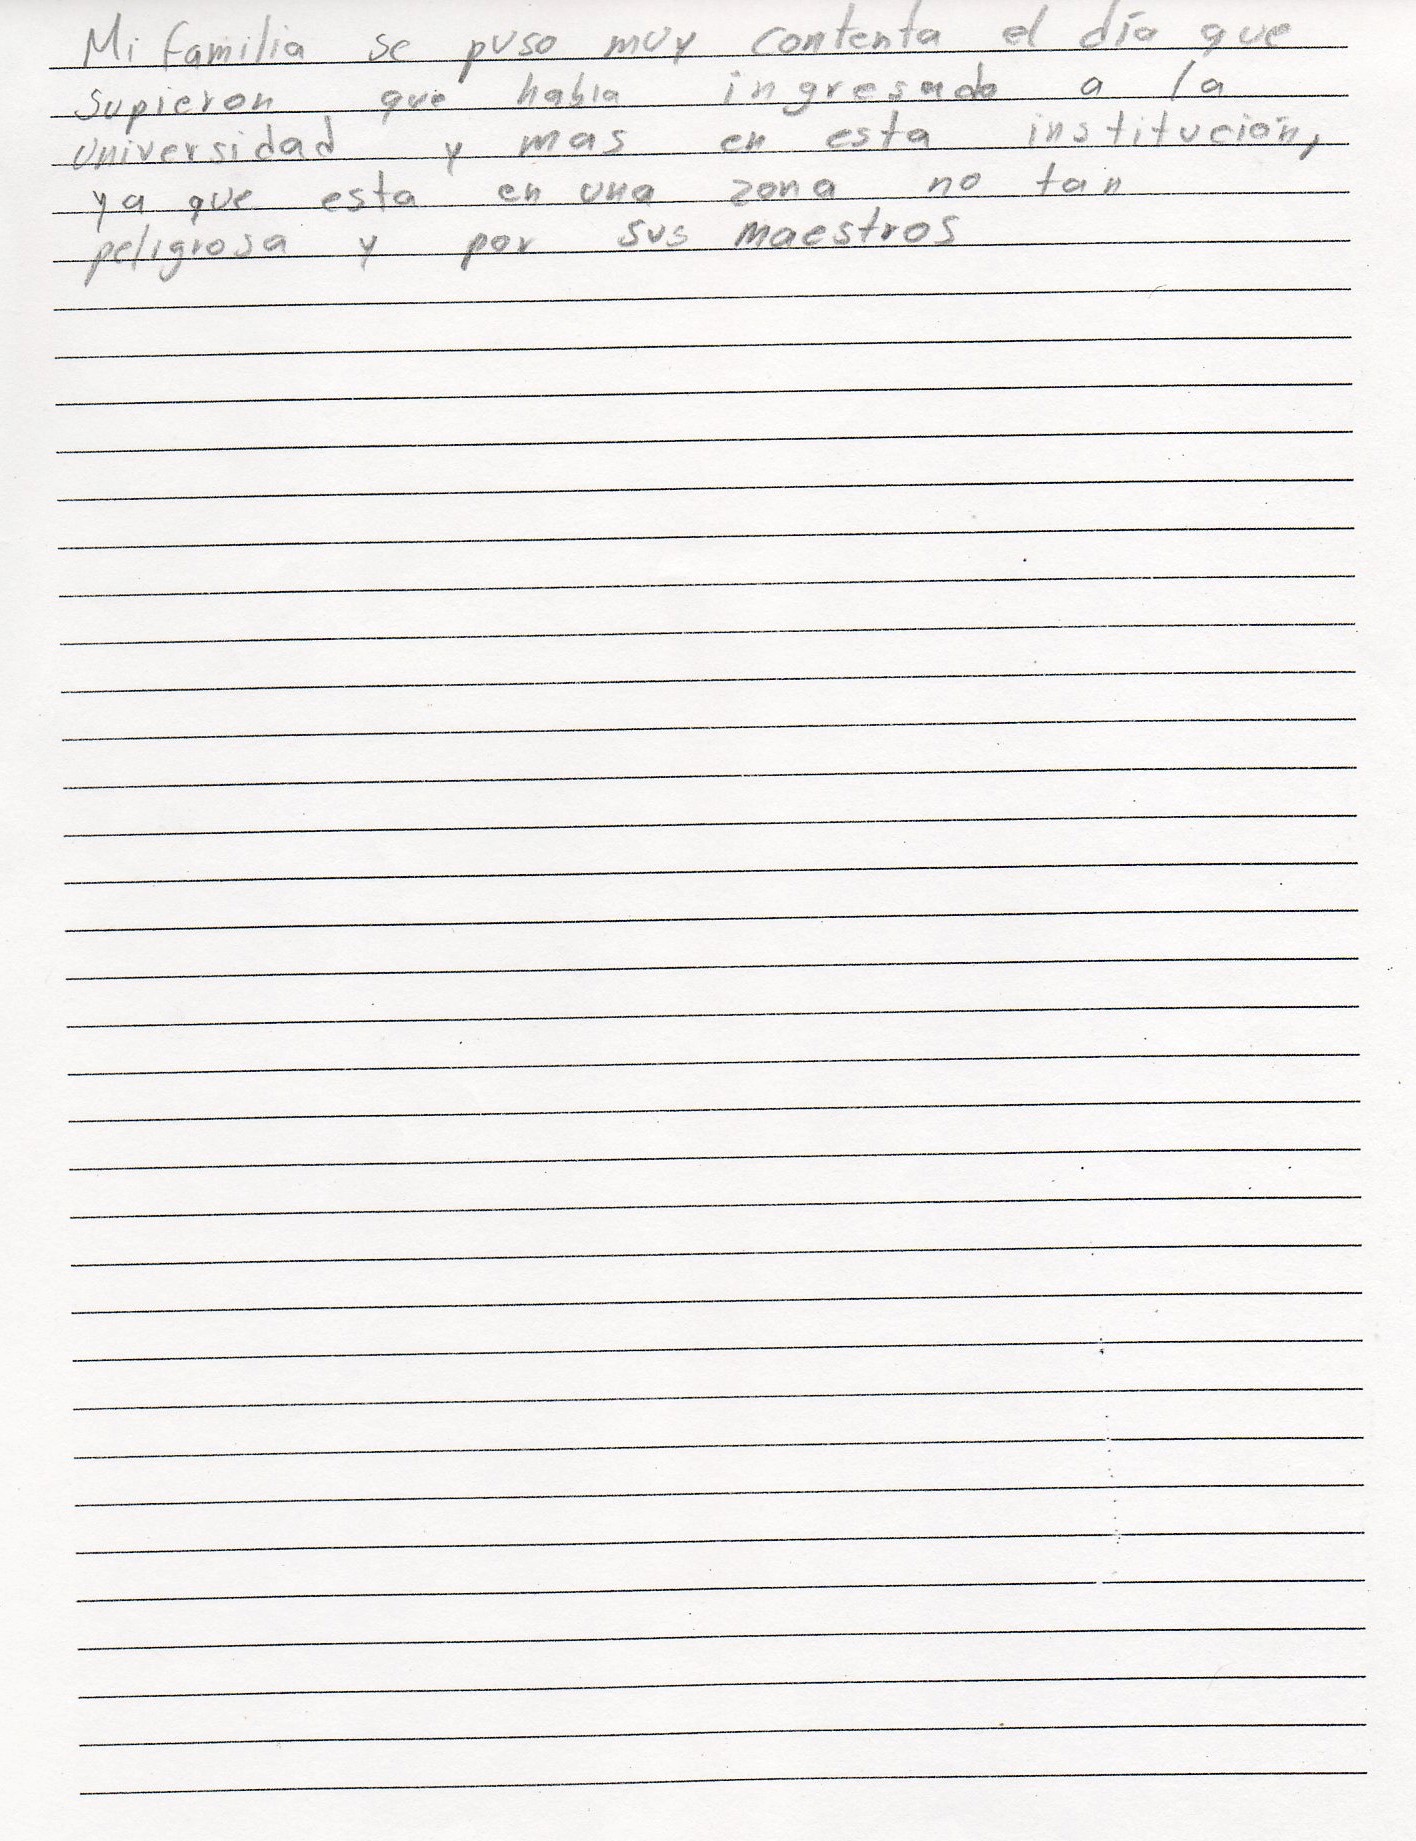 Mi familia se puso muy contenta el día que
supieron que habia ingresado a la
universidad y mas en esta institución,
ya que esta en una zona no tan
peligrosa y por sus maestros